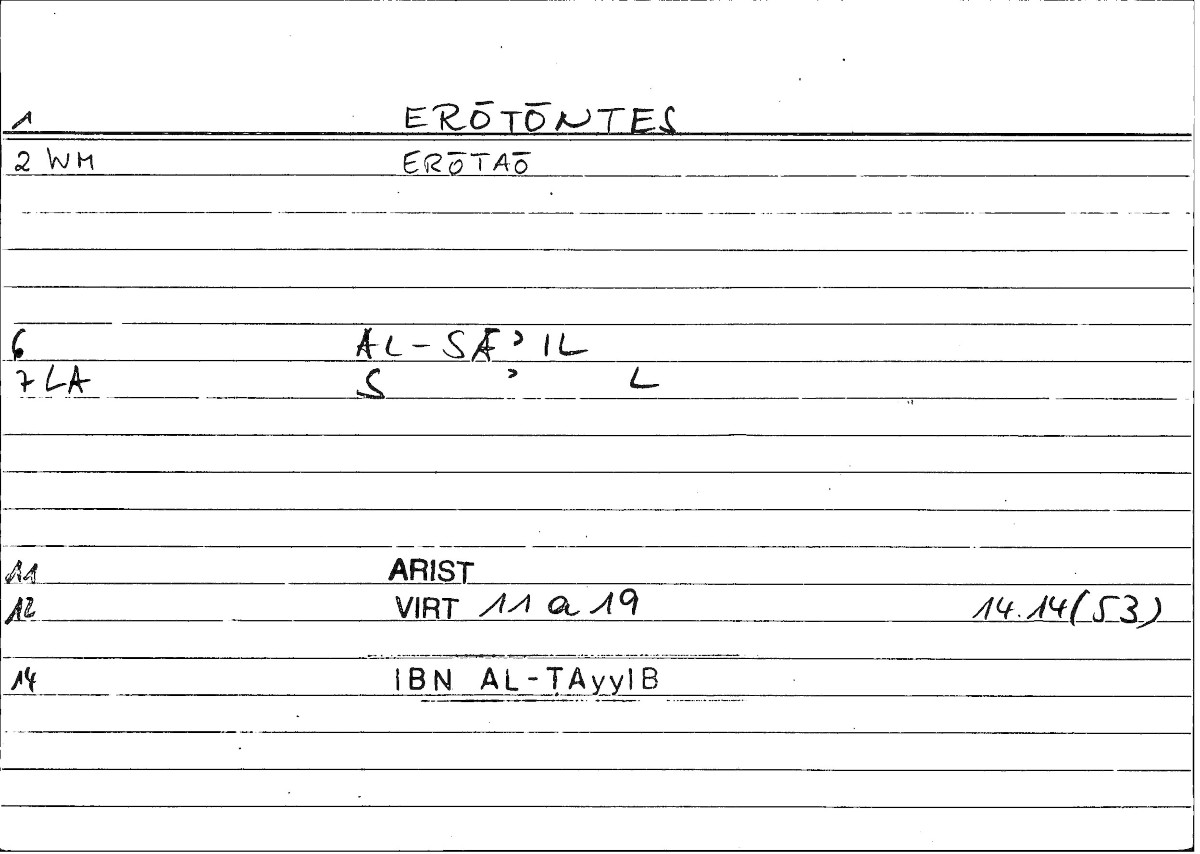 1 ERŌTŌNTES
2 WM ERŌTAŌ
6 AL-SĀʾIL
7 LA S ʾ L
11 ARIST
12 VIRT 11 a 19 14.14(53)
14 IBN AL-ṬAyyIB